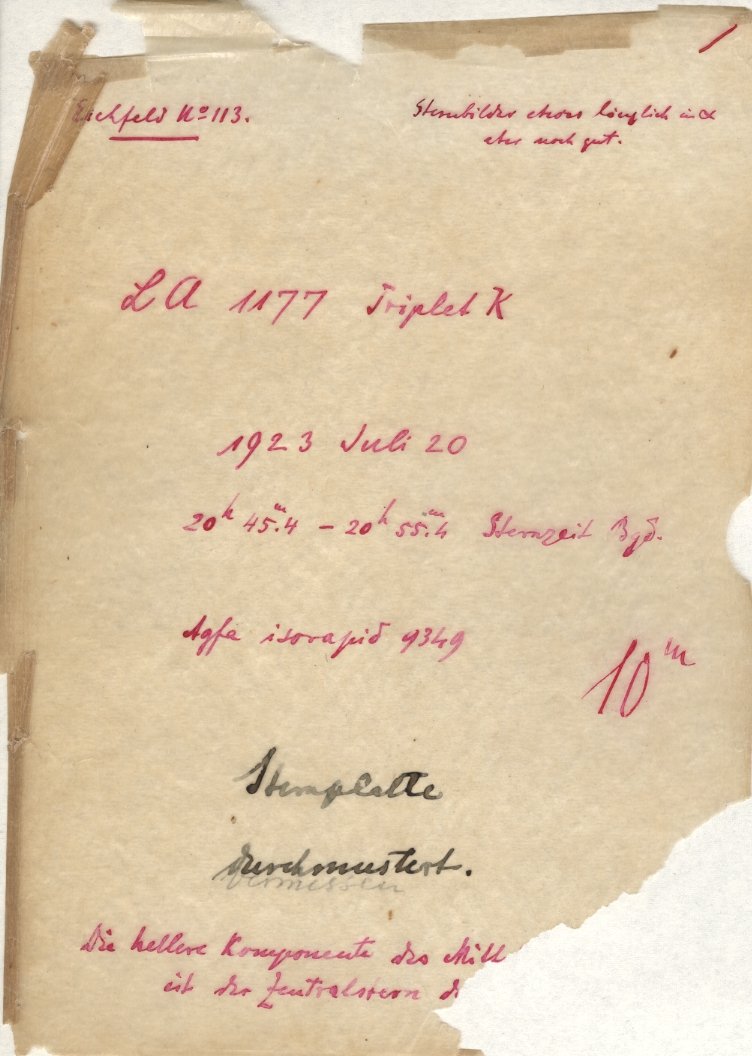 Eichfeld No 113.
Sternbilder etwas länglich in α
aber noch gut.
LA 1177 Triplet K
1923 Juli 20
20h 45m.4 – 20h 55m.4 Sternzeit Bgd.
Agfa isorapid 9349
10m
Sternplatte
durchmustert.
vermessen
Die hellere Komponente des Mitt
ist der Zentralstern d